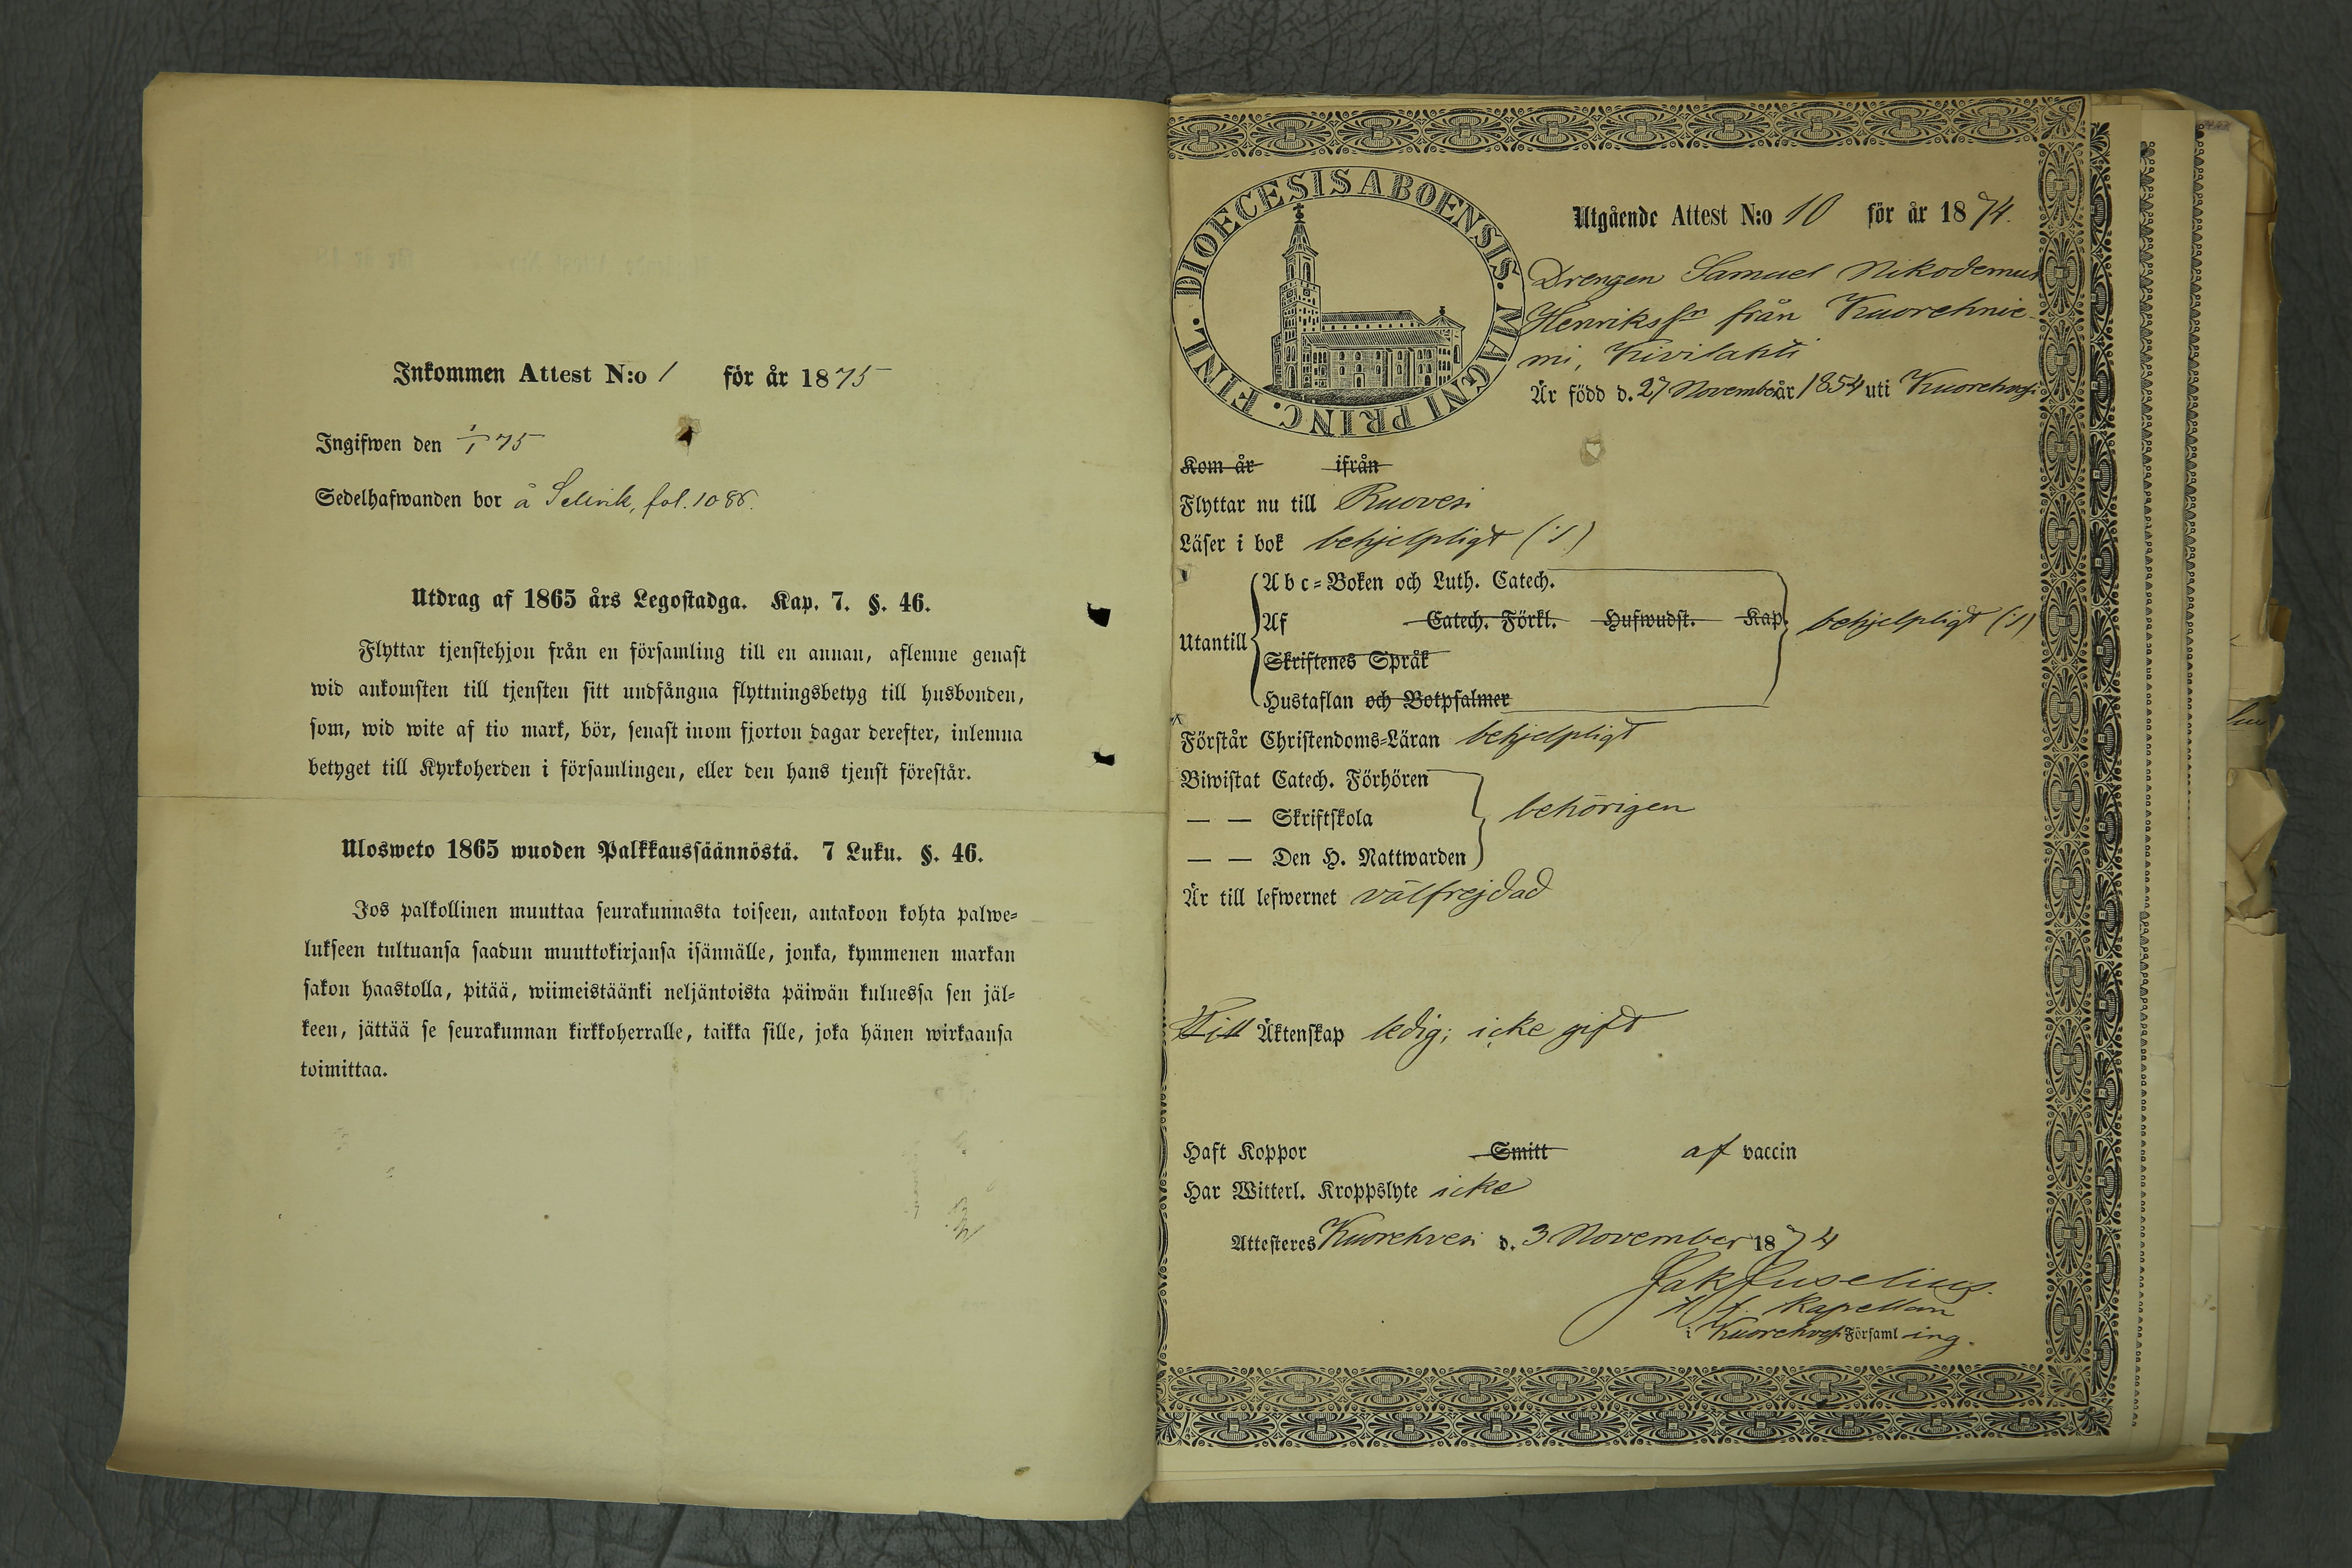 Inkommen Attest N:o 1 för år 1875
Ingifwen den 1/1 75
Sedelhafwanden bor å Selkik, fol. 1086.
Utdrag af 1865 års Legostadga. Kap. 7. §. 46.
Flyttar tjenstehjon från en församling till en annan, aflemne genast
wid ankomsten till tjensten sitt undfångna flyttningsbetyg till husbonden,
som, wid wite af tio mark, bör, senast inom fjorton dagar derefter, inlemna
betyget till Kyrkoherden i församlingen, eller den hans tjenst förestår.
Ulosweto 1865 wuoden Palkkaussäännöstä. 7 Luku. §. 46.
Jos palkollinen muuttaa seurakunnasta toiseen, antakoon kohta palwe-
lukseen tultuansa saadun muuttokirjansa isännälle, jonka, kymmenen markan
sakon haastolla, pitää, wiimeistäänki neljäntoista päiwän kuluessa sen jäl-
keen, jättää se seurakunnan kirkkoherralle, taikka sille, joka hänen wirkaansa
toimittaa.
DIOECESIS ABOENSIS. MAGNI PRINC. FINL.
Utgående Attest N:o 10 för år 1874.
Drengen Samuel Nikodemus
Henrikss:n från Kuorehnie-
mi, Kivilahti
Är född d. 27 November år 1854 uti Kuorehvesi
Kom år ifrån
Flyttar nu till Ruovesi
Läser i bok behjelpligt (1)
Abc-Boken och Luth. Catech.
Utantill Af Catech. Förkl. Hufwudst. Kap. behjelpligt (1)
Skriftenes Språk
Hustaflan och Botpsalmer
Förstår Christendoms-Läran behjelpligt
Biwistat Catech. Förhören
— — Skriftskola behörigen
— — Den H. Nattwarden
Är till lefwernet välfrejdad
Till Äktenskap ledig; icke gift
Haft Koppor Smitt af vaccin
Har Witterl. Kroppslyte icke
Attesteres Kuorehvesi d. 3 November 1874
Jak Juselius.
Kapellan
i Kuorehvesi Församling.